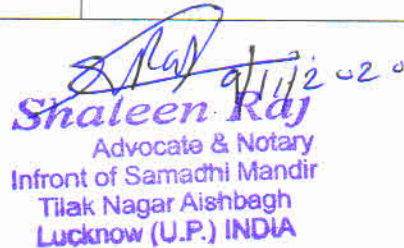 S Raj 9/11/2020
Shaleen Raj
Advocate & Notary
Infront of Samadhi Mandir
Tilak Nagar Aishbagh
Lucknow (U.P.) INDIA